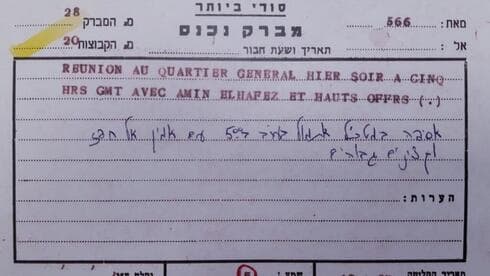 סודי ביותר
מאת: 566
מס המברק 28
מברק נכנס
אל:
מס הקבוצות 20
תאריך ושעת חבור
REUNION AU QUARTIER GENERAL HIER SOIR A CINQ
HRS GMT AVEC AMIN ELHAFEZ ET HAUTS OFFRS (.)
אסיפה במטכ"ל אתמול בערב ב-50 עם אמין אל חפז
וקצינים גבוהים
הערות:
תאריך
שמע: